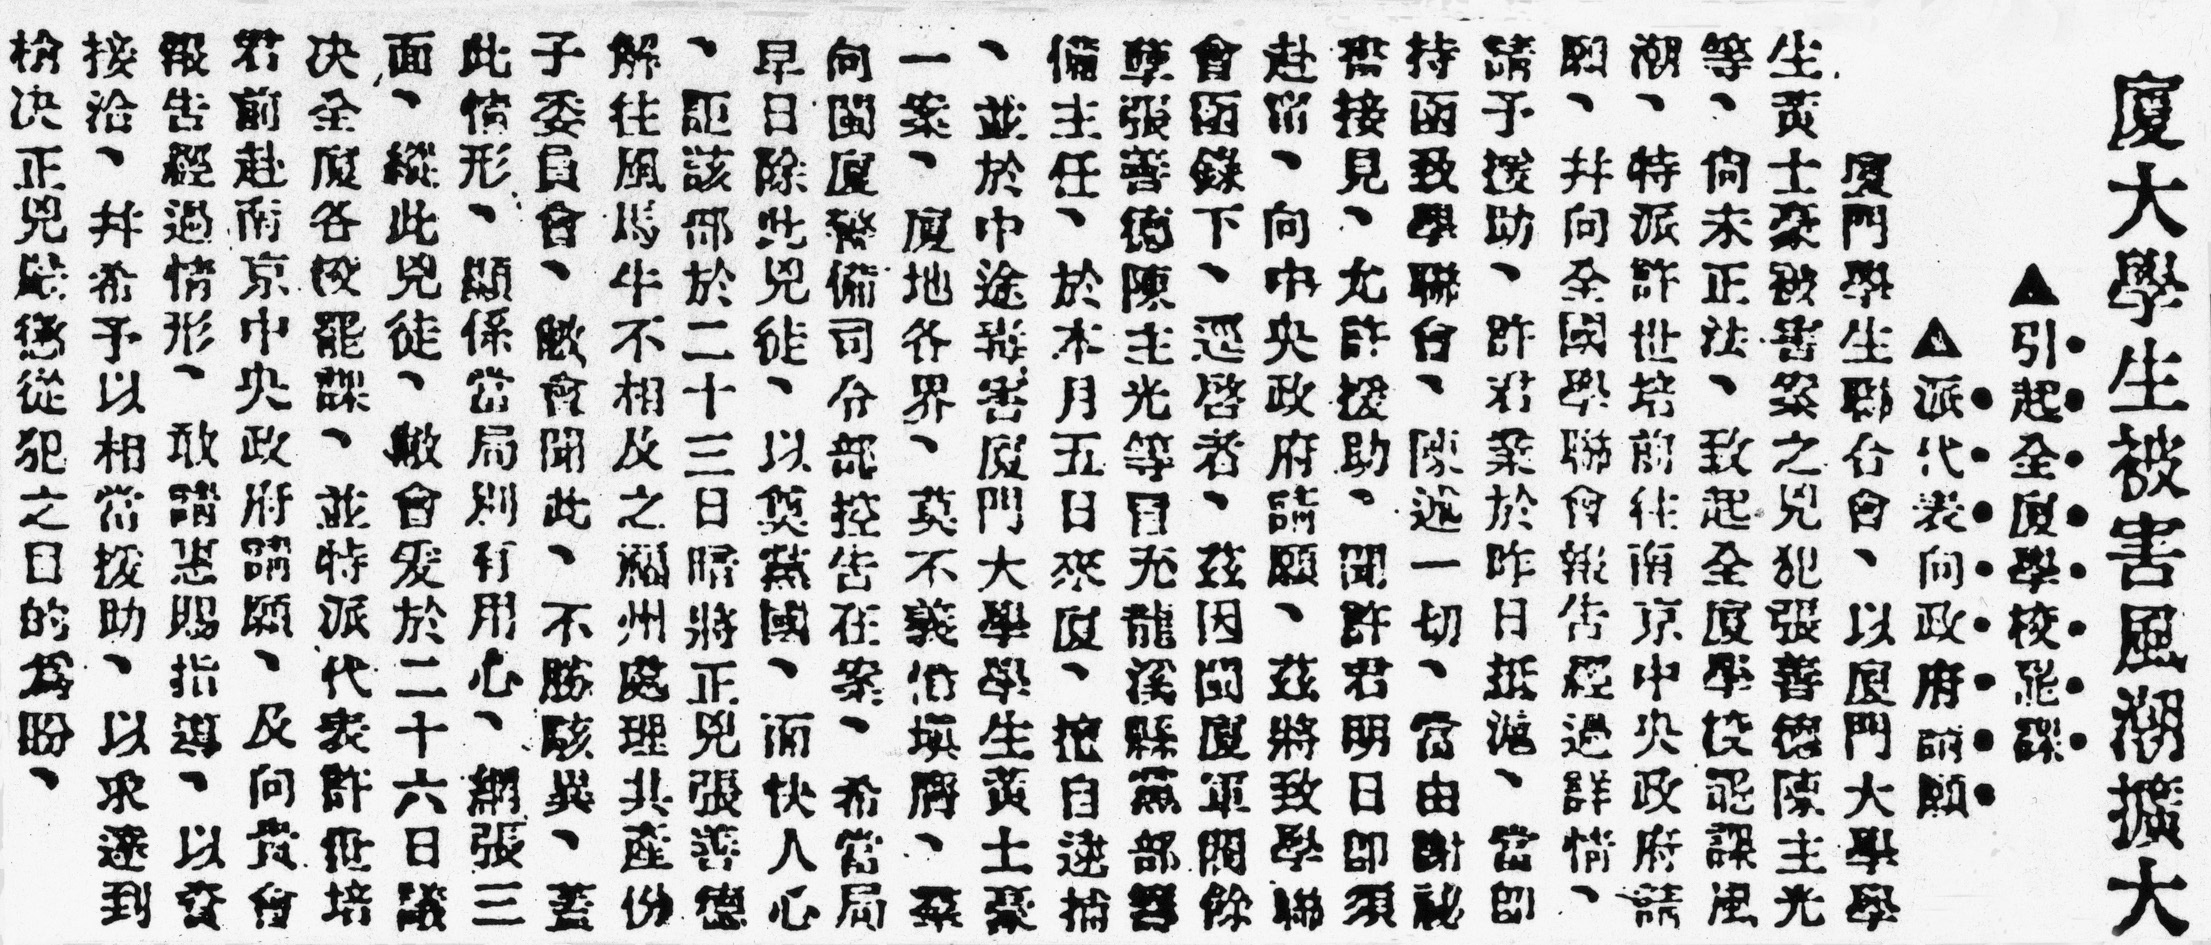 廈大學生被害風潮擴大
▲引起全廈學校罷課
▲派代表向政府請願
廈門學生聯合會、以廈門大學學
生黃士豪被害案之兇犯張善德陳主光
等、尙未正法、致起全廈學校罷課風
潮、特派許世培前往南京中央政府請
願、幷向全國學聯會報告經過詳情、
請予援助、許君業於昨日抵滬、當卽
持函致學聯台、陳述一切、當由謝祕
書接見、允許援助、聞許君明日卽須
赴甯、向中央政府請願、茲將致學聯
會函錄下、逕啓者、茲因閩廈軍閥餘
孽張善德陳主光等冒充龍溪縣黨部籌
備主任、於本月五日來廈、擅自逮捕
、並於中途戕害廈門大學學生黃士豪
一案、廈地各界、莫不義憤塡膺、羣
向閩廈警備司令部控告在案、希當局
早日除此兇徒、以奠黨國、而快人心
、詎該部於二十三日晤將正兇張善德
解往風馬牛不相及之福州處理共產份
子委員會、敝會聞此、不勝駭異、蓋
此情形、顯係當局別有用心、網張三
面、縱此兇徒、敝會爰於二十六日議
決全廈各校罷課、並特派代表許世培
君前赴南京中央政府請願、及向貴會
報告經過情形、敢請惠賜指導、以資
接洽、幷希予以相當援助、以求達到
槍決正兇嚴懲從犯之目的爲盼、